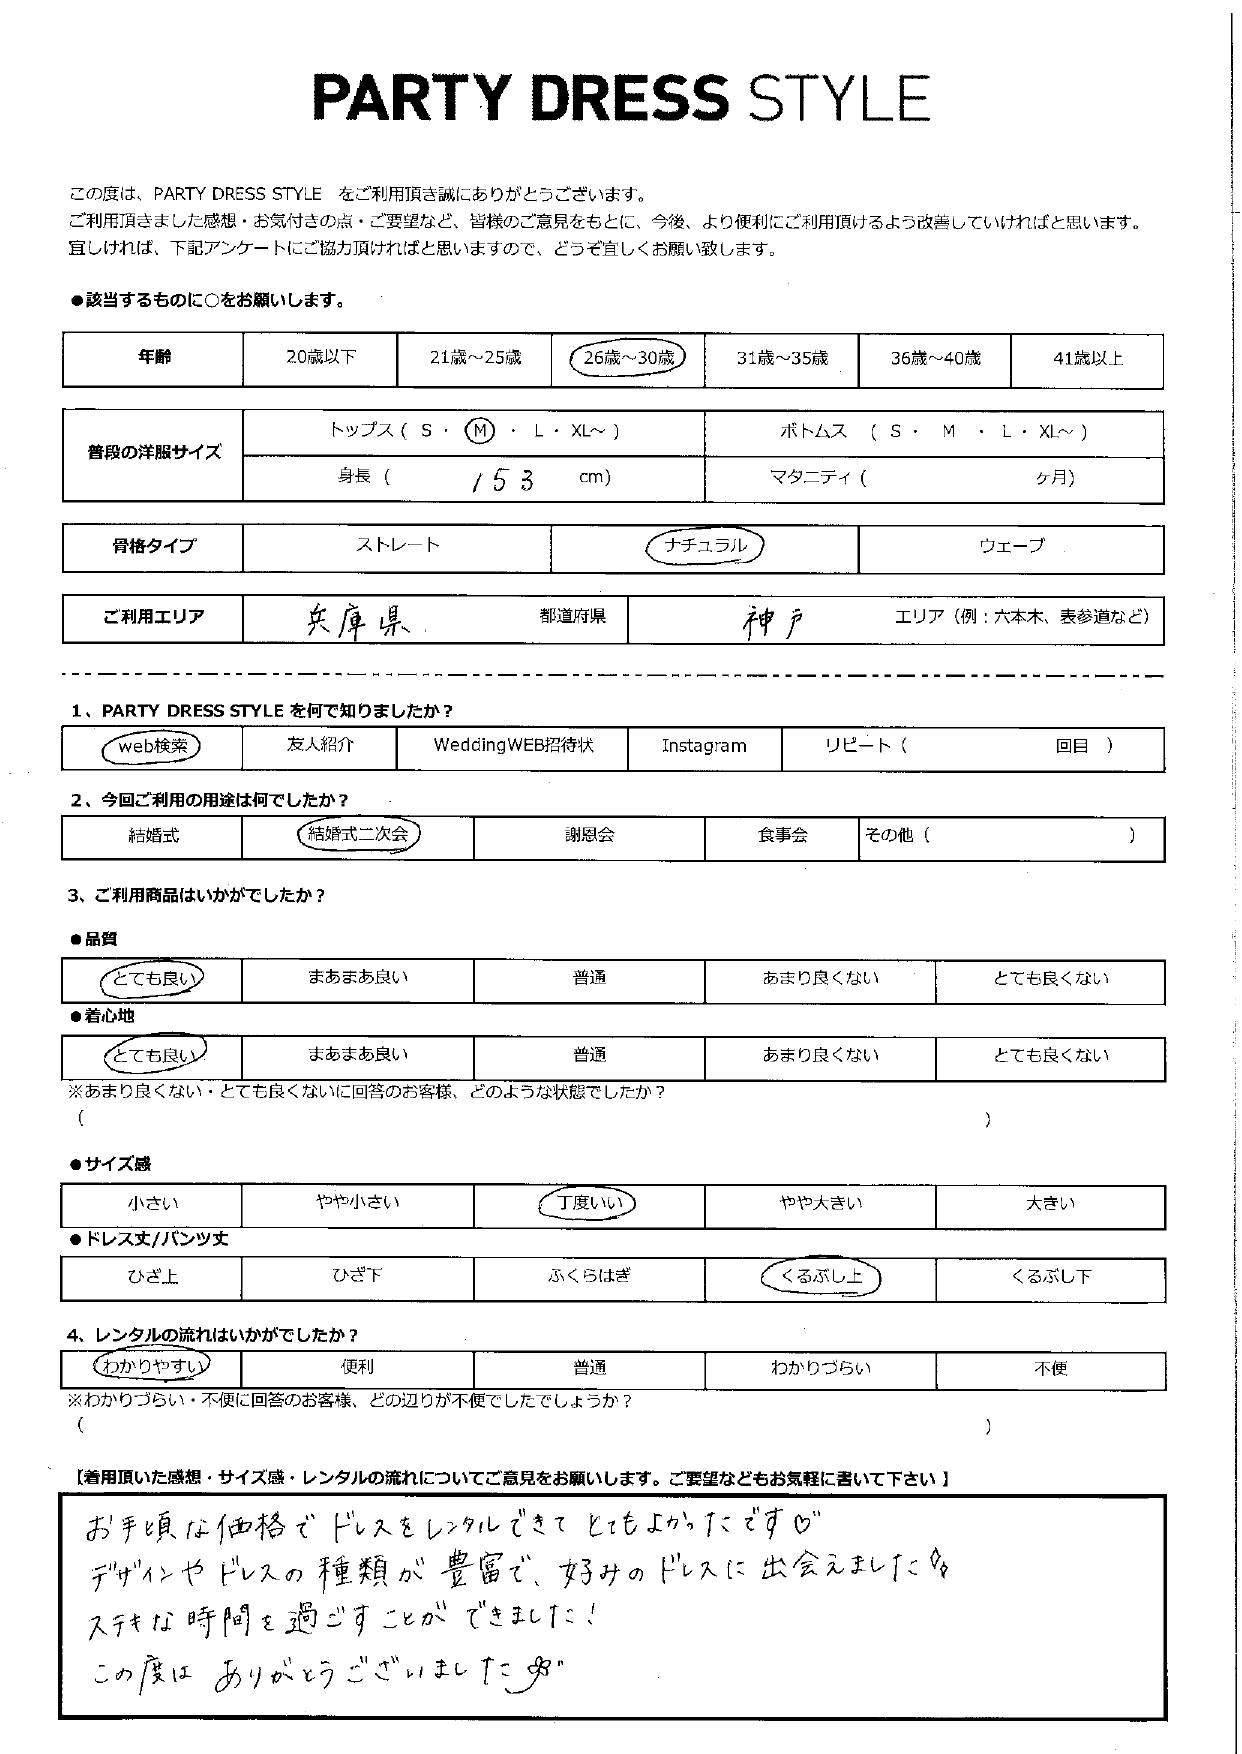 PARTY DRESS STYLE
この度は、PARTY DRESS STYLE をご利用頂き誠にありがとうございます。
ご利用頂きました感想・お気付きの点・ご要望など、皆様のご意見をもとに、今後、より便利にご利用頂けるよう改善していければと思います。
宜しければ、下記アンケートにご協力頂ければと思いますので、どうぞ宜しくお願い致します。
●該当するものに○をお願いします。
年齢 20歳以下 21歳～25歳 26歳～30歳 31歳～35歳 36歳～40歳 41歳以上
普段の洋服サイズ
トップス ( S ・ M ・ L ・ XL～ ) ボトムス ( S ・ M ・ L ・ XL～ )
身長 ( 153 cm) マタニティ ( ヶ月)
骨格タイプ ストレート ナチュラル ウェーブ
ご利用エリア 兵庫県 都道府県 神戸 エリア（例：六本木、表参道など）
1、PARTY DRESS STYLE を何で知りましたか？
web検索 友人紹介 WeddingWEB招待状 Instagram リピート ( 回目 )
2、今回ご利用の用途は何でしたか？
結婚式 結婚式二次会 謝恩会 食事会 その他 ( )
3、ご利用商品はいかがでしたか？
●品質
とても良い まあまあ良い 普通 あまり良くない とても良くない
●着心地
とても良い まあまあ良い 普通 あまり良くない とても良くない
※あまり良くない・とても良くないに回答のお客様、どのような状態でしたか？
( )
●サイズ感
小さい やや小さい 丁度いい やや大きい 大きい
●ドレス丈/パンツ丈
ひざ上 ひざ下 ふくらはぎ くるぶし上 くるぶし下
4、レンタルの流れはいかがでしたか？
わかりやすい 便利 普通 わかりづらい 不便
※わかりづらい・不便に回答のお客様、どの辺りが不便でしたでしょうか？
( )
【着用頂いた感想・サイズ感・レンタルの流れについてご意見をお願いします。ご要望などもお気軽に書いて下さい 】
お手頃な価格で ドレスをレンタルできて とてもよかったです♡
デザインや ドレスの 種類が 豊富で、好みの ドレスに 出会えました
ステキな 時間を 過ごすことが できました！
この度は ありがとうございました